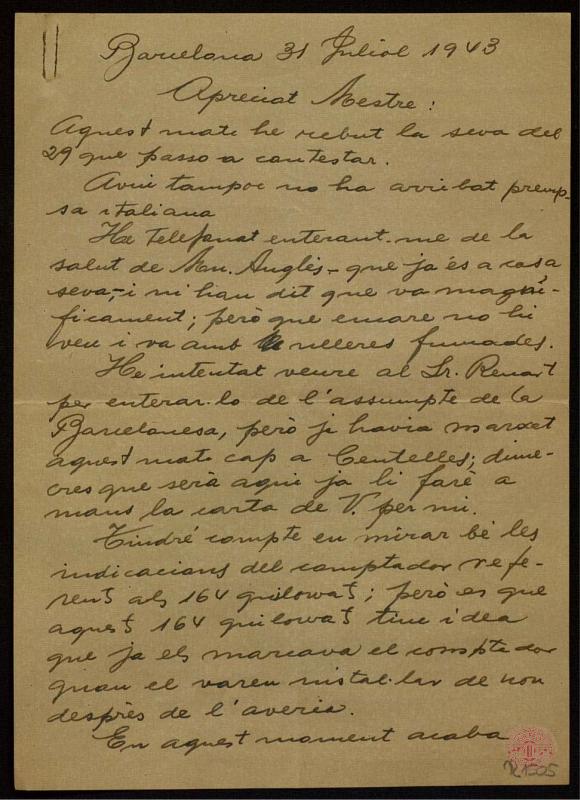 Barcelona 31 Juliol 1943
Apreciat Mestre:
Aquest matí he rebut la seva del
29 que passo a contestar.
Avui tampoc no ha arribat premp-
sa italiana
He telefonat enterant-me de la
salut de Mn. Anglès - que ja és a casa
seva, - i m'han dit que va magní-
ficament; però que encare no hi
veu i va amb ulleres fumades.
He intentat veure al Sr. Renart
per enterar-lo de l'assumpte de la
Barcelonesa, però ja havia marxat
aquest matí cap a Centelles; dime-
cres que serà aquí ja li faré a
mans la carta de V. per mi.
Tindré compte en mirar bé les
indicacions del comptador refe-
rent als 164 quilowats; però es que
aquests 164 quilowats tinc idea
que ja els marcava el comptador
quan el varen instal·lar de nou
desprès de l'averia.
En aquest moment acaba
R.1505